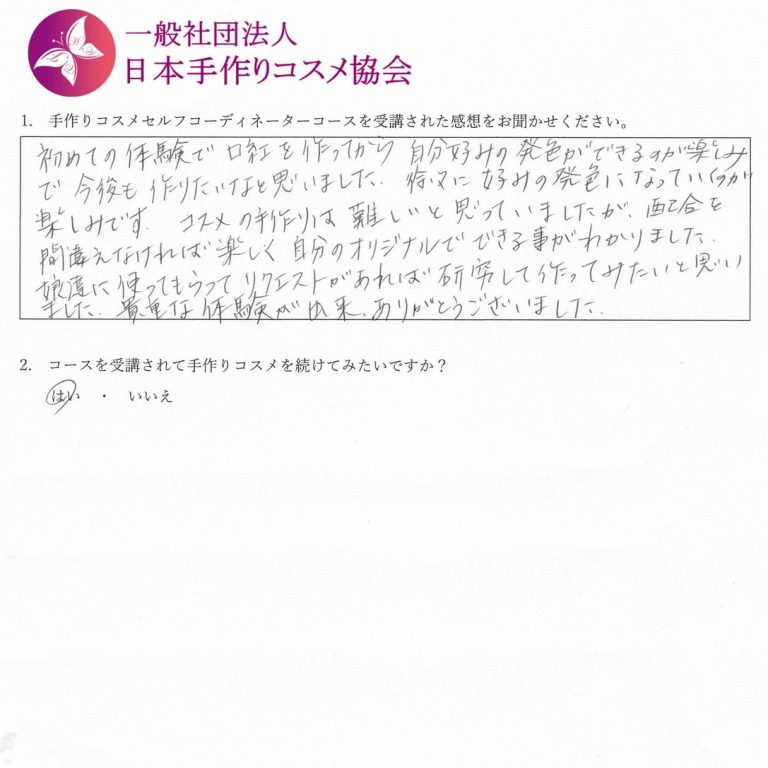 一般社団法人
日本手作りコスメ協会
1. 手作りコスメセルフコーディネーターコースを受講された感想をお聞かせください。
初めての体験で口紅を作ってから自分好みの発色ができるのが楽しみ
で今後も作りたいなと思いました。徐々に好みの発色になっていくのが
楽しみです。コスメの手作りは難しいと思っていましたが、配合を
間違えなければ楽しく自分のオリジナルでできる事がわかりました。
娘達に使ってもらってリクエストがあれば研究して作ってみたいと思い
ました。貴重な体験が出来、ありがとうございました。
2. コースを受講されて手作りコスメを続けてみたいですか？
はい ・ いいえ